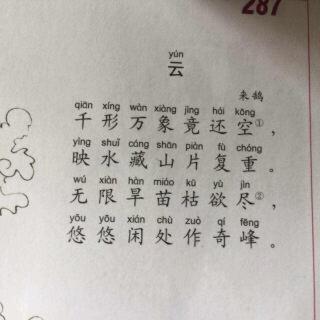 287
yún
云
来鹄
qiān xíng wàn xiàng jìng hái kōng
千形万象竟还空①，
yìng shuǐ cáng shān piàn fù chóng
映水藏山片复重。
wú xiàn hàn miáo kū yù jìn
无限旱苗枯欲尽②，
yōu yōu xián chù zuò qí fēng
悠悠闲处作奇峰。